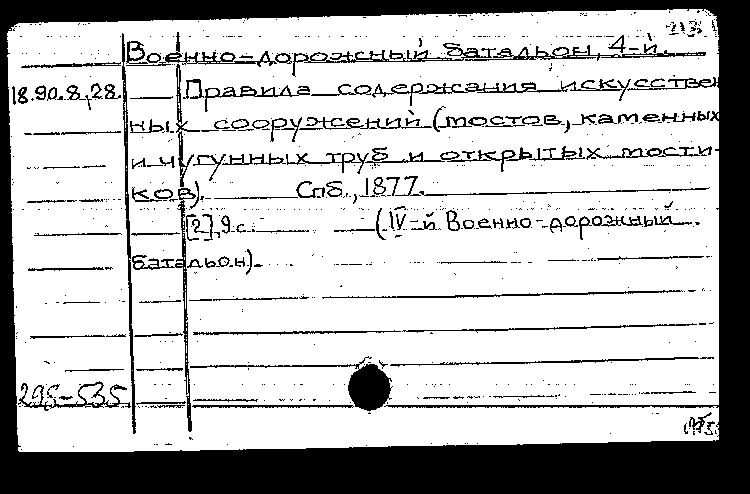 213
Военно-дорожный батальон, 4-й.
18.90.8,28. Правила содержания искусствен
ных сооружений (мостов, каменных
и чугунных труб и открытых мости-
ков). Спб., 1877.
[2], 9 с. (IV-й Военно-дорожный
батальон).
298-535